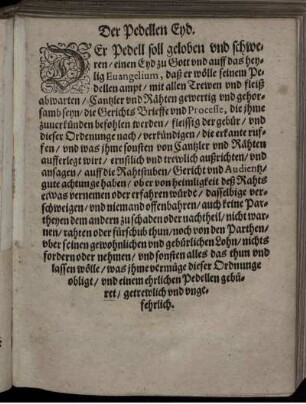 Der Pedellen Eyd.
DEr Pedell soll geloben vnd schwe-
ren / einen Eyd zu Gott vnd auff das hey-
lig Euangelium, daß er wölle seinem Pe-
dellen ampt / mit allen Trewen vnd fleiß
abwarten / Cantzler vnd Rähten gewertig vnd gehor-
samb seyn / die Gerichts Brieffe vnd Processe, die jhme
zuuerkünden befohlen werden / fleissig der gebür / vnd
dieser Ordenunge nach / verkündigen / die erkante ruf-
fen / vnd was jhme sonsten von Cantzler vnd Rähten
aufferlegt wirt / ernstlich vnd trewlich außrichten / vnd
ansagen / auff die Rahtstuben / Gericht vnd Audientz /
gute achtunge haben / ober von heimligkeit deß Rahts
etwas vernemen oder erfahren würde / dasselbige ver-
schweigen / vnd niemand offenbahren / auch keine Par-
theyen dem andern zu schaden oder nachtheil / nicht war-
nen / rahten oder fürschub thun / noch von den Parthen /
vber seinen gewöhnlichen vnd gebürlichen Lohn / nichts
fordern oder nehmen / vnd sonsten alles das thun vnd
lassen wölle / was jhme vermüge dieser Ordnunge
obligt / vnd einem ehrlichen Pedellen gebü-
ret / getrewlich vnd vnge-
fehrlich.